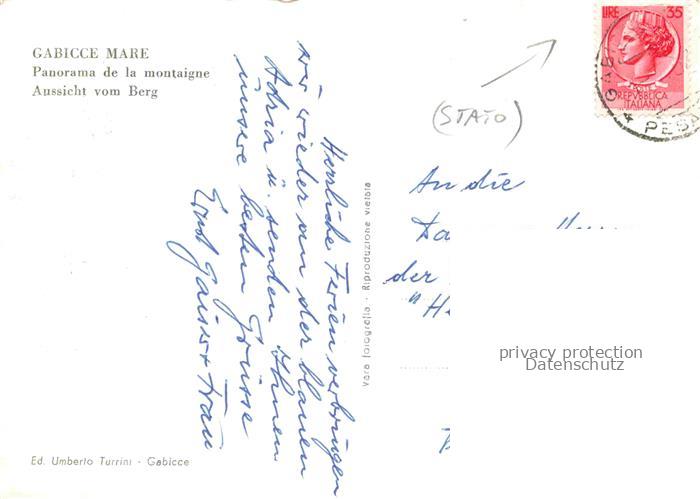 GABICCE MARE
Panorama de la montaigne
Aussicht vom Berg
LIRE 35
REPVBBLICA
ITALIANA
GAB
PESA
(STATO)
Herrliche Ferien verbringen
wir wieder an der blauen
Adria u. senden Ihnen
unsere besten Grüsse
Ernst Gaisser + Frau
Vera fotografia - Riproduzione vietata
An die
der
privacy protection
Datenschutz
Ed. Umberto Turrini - Gabicce